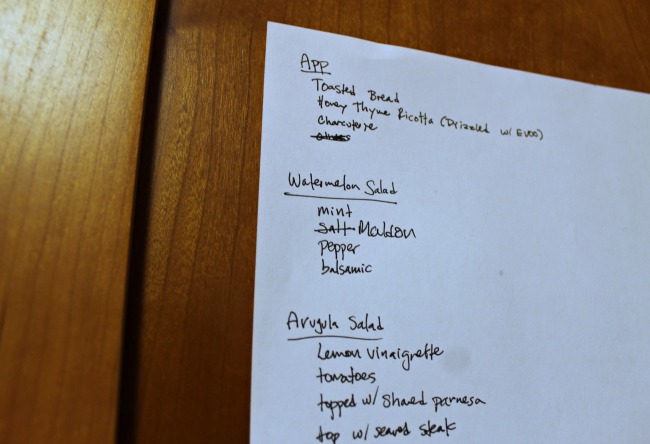 APP
Toasted Bread
Honey Thyme Ricotta (Drizzled w/ EVOO)
Charcuterie
Watermelon Salad
mint
salt Maldon
pepper
balsamic
Arugula Salad
Lemon vinaigrette
tomatoes
topped w/ shared parmesa
top w/ seared steak